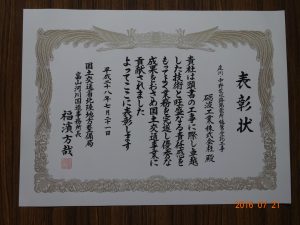 表彰状
砺波工業株式会社 殿
貴社は頭書の工事に際し卓越
した技術と旺盛なる責任感を
もってよく業務を完遂し優秀な
成果をおさめ国土交通事業に
貢献されました
よってここに表彰します
平成二十八年七月二十一日
国土交通省北陸地方整備局
富山河川国道事務所長
福濱方哉
2016 07 21